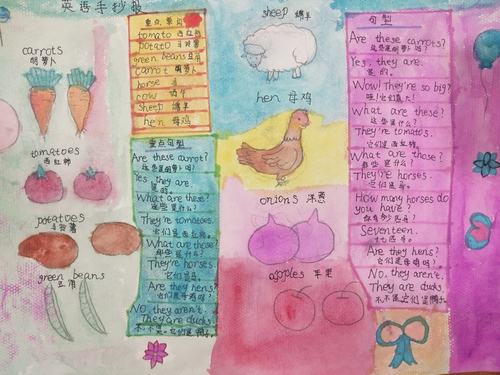 英语手抄报
carrots
胡萝卜
tomatoes
西红柿
potatoes
马铃薯
green beans
豆角
重点单词
tomato 西红柿
potato 马铃薯
green beans 豆角
carrot 胡萝卜
horse 马
cow 奶牛
sheep 绵羊
hen 母鸡
重点句型
Are these carrot?
这些是胡萝卜吗?
Yes, they are.
是的。
What are these?
这些是什么?
They're tomatoes.
它们是西红柿。
What are those?
那些是什么?
They're horses.
它们是马。
Are they hens?
它们是母鸡吗?
No, they aren't.
They are ducks.
不,不是。它们是鸭子。
sheep 绵羊
hen 母鸡
onions 洋葱
apoples 苹果
句型
Are these carrots?
这些是胡萝卜吗?
Yes, they are.
是的。
Wow! They're so big?
What are these?
这些是什么?
They're tomatoes.
它们是西红柿。
What are those?
那些是什么?
They're horses.
它们是马。
How many horses do
you have?
你有多少匹马?
Seventeen.
十七匹。
Are they hens?
它们是母鸡吗?
No, they aren't.
They are ducks.
不,不是它们是鸭子。